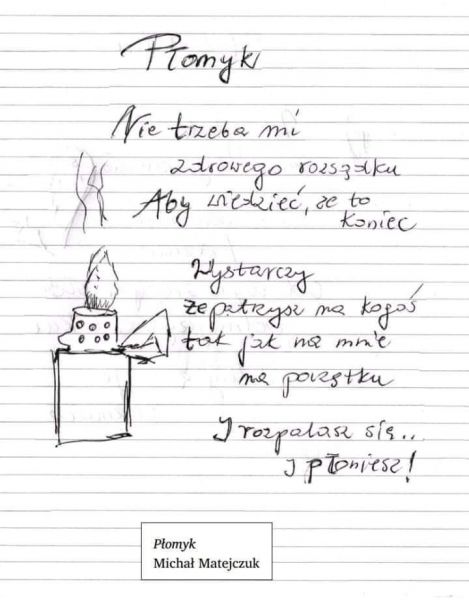 Płomyk
Nie trzeba mi
zdrowego rozsądku
Aby wiedzieć, że to
koniec
Wystarczy
że patrzysz na kogoś
tak jak na mnie
na początku
I rozpalasz się..
I płoniesz!
Płomyk
Michał Matejczuk